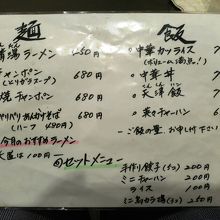 麺
ラーメン 650
チャンポン 680
(とりガラスープ)
焼チャンポン 680
パリパリあんかけそば 680
(ハーフ 480円)
今月のおすすめラーメン
大盛は100円
飯
中華カツライス
(ボリューム満点!)
・中華丼
・天津飯
・菜っチャーハン
・ご飯の量、お申し付け下さい
◎セットメニュー
手作り餃子(5ケ) 200
ミニチャーハン 200
ライス 100
ミニ鳥から揚(3ケ) 250